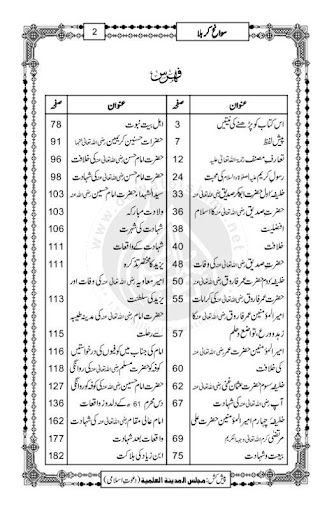 سوانح کربلا
2
فہرس
عنوان صفحہ
اس کتاب کو پڑھنے کی نیتیں 3
پیش لفظ 7
تعارفِ مصنف رحمۃ اللہ تعالیٰ علیہ 12
رسول کریم علیہ الصلوٰۃ والسلام کی محبت 24
خلیفہ اول حضرت ابوبکر صدیق رضی اللہ تعالیٰ عنہ 33
حضرت صدیق رضی اللہ تعالیٰ عنہ کا اسلام 36
افضلیت 38
خلافت 40
حضرت صدیق رضی اللہ تعالیٰ عنہ کی وفات 48
خلیفہ دوم حضرت عمر فاروق رضی اللہ تعالیٰ عنہ 50
حضرت عمر فاروق رضی اللہ تعالیٰ عنہ کی کرامات 55
امیر المؤمنین حضرت عمر فاروق رضی اللہ تعالیٰ عنہ کا
زہد و ورع، تواضع و حلم 57
امیر المؤمنین حضرت عمر رضی اللہ تعالیٰ عنہ
کی خلافت 60
خلیفہ سوم حضرت عثمان غنی رضی اللہ تعالیٰ عنہ 62
آپ رضی اللہ تعالیٰ عنہ کی شہادت 67
خلیفہ چہارم امیر المؤمنین حضرت علی
مرتضیٰ کرم اللہ تعالیٰ وجہہ الکریم 69
بیعت و شہادت 75
عنوان صفحہ
اہل بیت نبوت 78
حضرات حسنین کریمین رضی اللہ تعالیٰ عنہما 91
حضرت امام حسن رضی اللہ تعالیٰ عنہ کی خلافت 96
حضرت امام حسن رضی اللہ تعالیٰ عنہ کی شہادت 98
سید الشہداء حضرت امام حسین رضی اللہ تعالیٰ عنہ 103
ولادت مبارکہ 103
شہادت کی شہرت 106
شہادت کے واقعات 111
یزید کا مختصر تذکرہ 111
امیر معاویہ رضی اللہ تعالیٰ عنہ کی وفات اور
یزید کی سلطنت 113
حضرت امام حسین رضی اللہ تعالیٰ عنہ کی مدینہ طیبہ
سے رحلت 115
امام کی جناب میں کوفیوں کی درخواستیں 116
کوفہ کو حضرت مسلم رضی اللہ تعالیٰ عنہ کی روانگی 118
حضرت امام حسین رضی اللہ تعالیٰ عنہ کی کوفہ کو روانگی 127
دس محرم 61ھ کے دلدوز واقعات 136
امام عالی مقام رضی اللہ تعالیٰ عنہ کی شہادت 162
واقعات بعد شہادت 177
ابن زیاد کی ہلاکت 182
پیش کش: مجلس المدینۃ العلمیۃ (دعوت اسلامی)